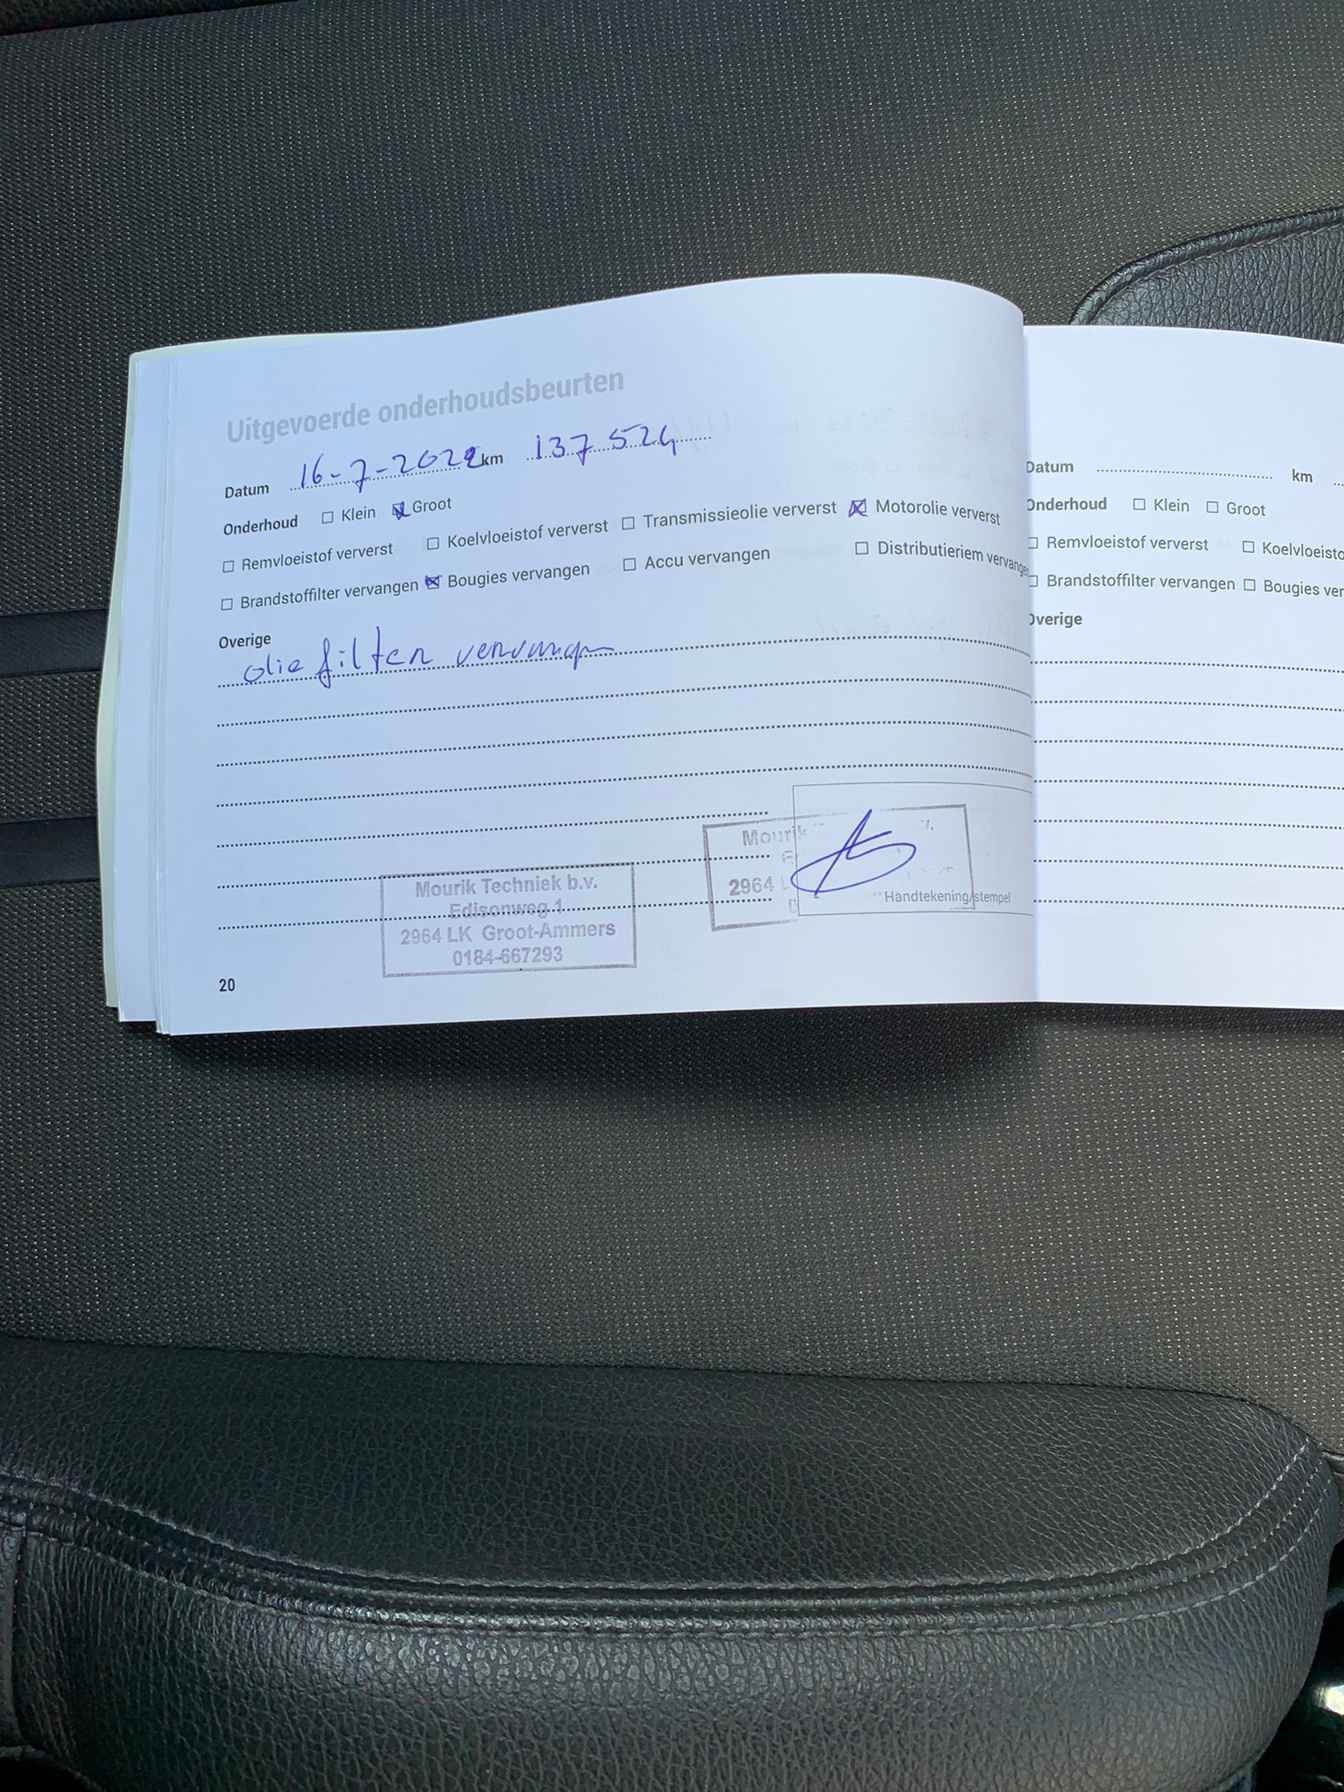 Uitgevoerde onderhoudsbeurten
Datum 16-7-2022 km 137524
Onderhoud ☐ Klein ☒ Groot
☐ Remvloeistof ververst ☐ Koelvloeistof ververst ☐ Transmissieolie ververst ☒ Motorolie ververst
☐ Brandstoffilter vervangen ☒ Bougies vervangen ☐ Accu vervangen ☐ Distributieriem vervangen
Overige
olie filter vervangen
Mourik Techniek b.v.
Edisonweg 1
2964 LK Groot-Ammers
0184-667293
Mourik
2964
Handtekening/stempel
20
Datum km
Onderhoud ☐ Klein ☐ Groot
☐ Remvloeistof ververst ☐ Koelvloeisto
☐ Brandstoffilter vervangen ☐ Bougies ver
Overige